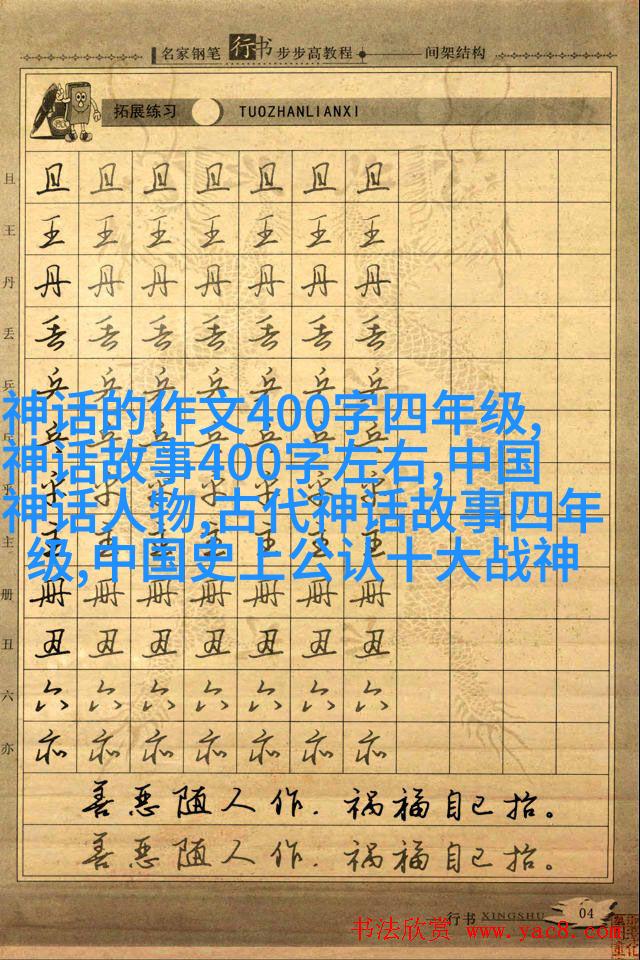 名家钢笔行书步步高教程 间架结构
拓展练习 TUOZHANLIANXI
且 且 且 且 且 且 且 且
王 王 王 王 王 王 王 王
丹 丹 丹 丹 丹 丹 丹 丹
丢 丢 丢 丢 丢 丢 丢 丢
神话的作文400字四年级,
神话故事400字左右,中国
神话人物,古代神话故事四年
级,中国史上公认十大战神
乎 乎 乎 乎 乎 乎 乎 乎
主 主 主 主 主 主 主 主
册 册 册 册 册 册 册 册
丑 丑 丑 丑 丑 丑 丑 丑
六 六 六 六 六 六 六 六
亦 亦 亦 亦 亦 亦 亦 亦
善恶随人作，祸福自己招。
善恶随人作，祸福自己招。
行书 XINGSHU 04
书法欣赏 www.yac8.com